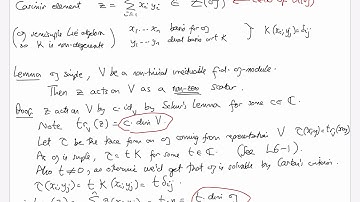 Casimir element z = Σ xᵢyᵢ ∈ Z(U(g)) ← centre of U(g)
(g semisimple Lie algebra x₁...xₙ basis for g } K(xᵢ,yⱼ)=δᵢⱼ
so K is non-degenerate) y₁...yₙ dual basis wrt K
Lemma g simple, V be a non-trivial irreducible f.d. g-module.
Then z acts on V as a non-zero scalar.
Proof z acts on V by c·id_V by Schur's Lemma for some c ∈ ℂ.
Note tr_V(z) = c·dim V.
Let τ be the trace form on g coming from representation V τ(x,y)=tr(xy)
As g is simple, τ = t K for some t ∈ ℂ. (See L6-1).
Also t ≠ 0, as otherwise we'd get that g is solvable by Cartan's criterion.
τ(xᵢ,yⱼ) = t K(xᵢ,yⱼ) = t δᵢⱼ.
t·dim g